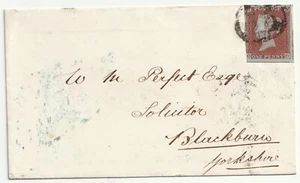 ONE PENNY
W M Perfect Esqe
Solicitor
Blackburn
Yorkshire